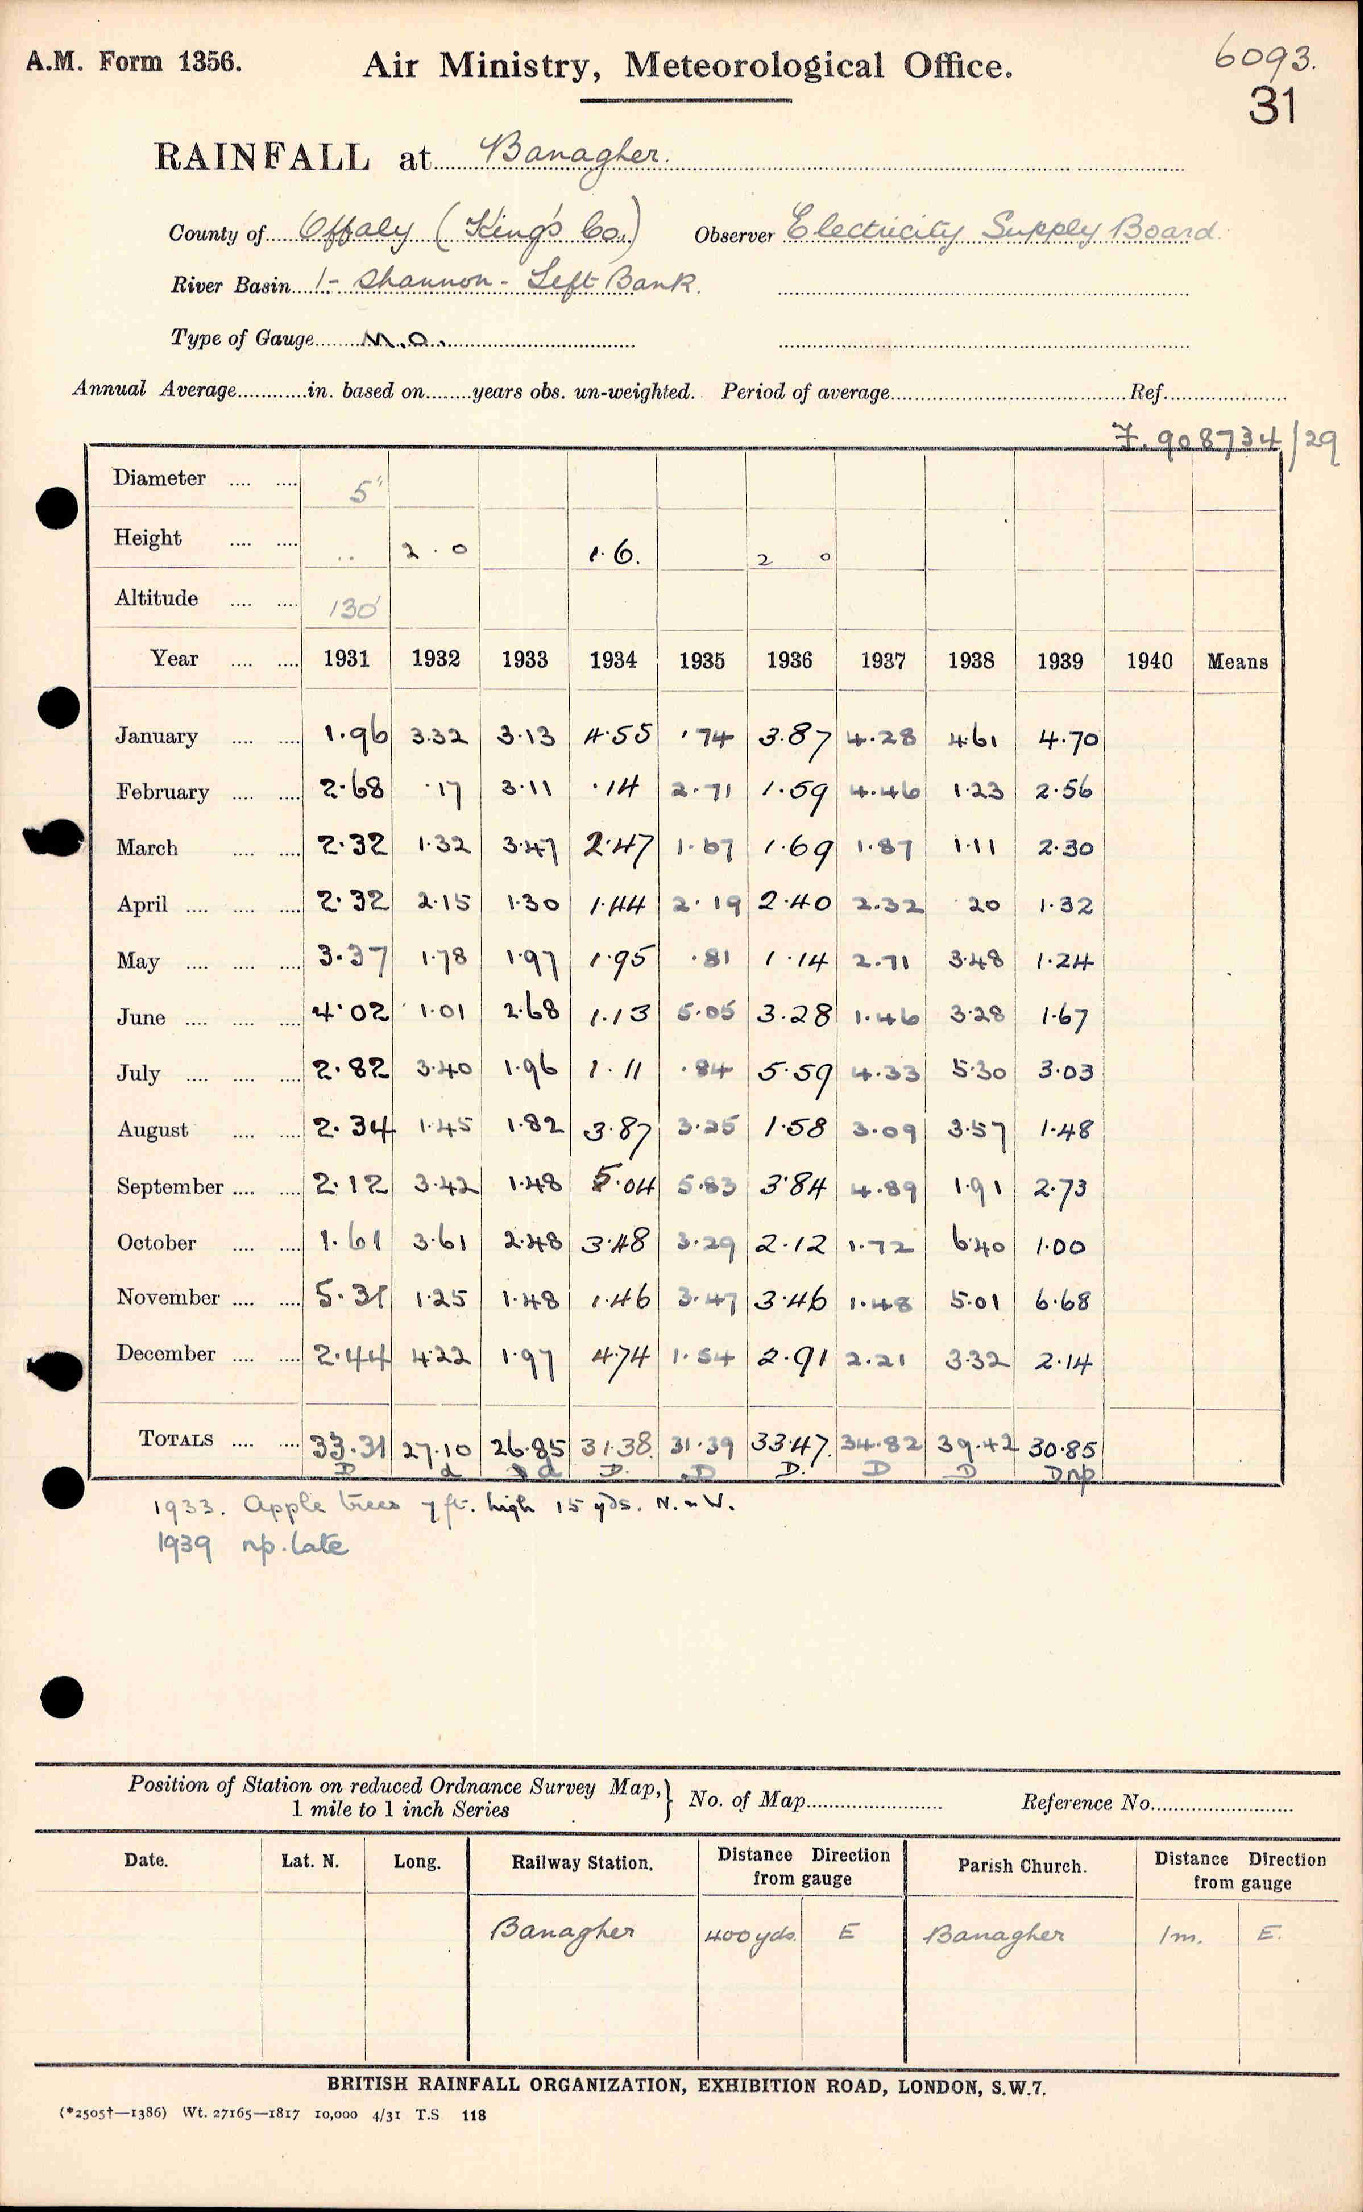 A.M. Form 1356.
Air Ministry, Meteorological Office.
6093.
31
RAINFALL at Banagher.
County of Offaly (King's Co.) Observer Electricity Supply Board.
River Basin 1- Shannon - Left Bank.
Type of Gauge M.O.
Annual Average............in. based on........years obs. un-weighted. Period of average..........Ref..........
7.908734/29
Diameter .... .... 5"
Height .... .... .. 2.0 1.6. 2 0
Altitude .... .... 130'
Year .... .... 1931 1932 1933 1934 1935 1936 1937 1938 1939 1940 Means
January .... .... 1.96 3.32 3.13 4.55 .74 3.87 4.28 4.61 4.70
February .... .... 2.68 .17 3.11 .14 2.71 1.59 4.46 1.23 2.56
March .... .... 2.32 1.32 3.47 2.47 1.67 1.69 1.87 1.11 2.30
April .... .... .... 2.32 2.15 1.30 1.44 2.19 2.40 2.32 .20 1.32
May .... .... .... 3.37 1.78 1.97 1.95 .81 1.14 2.71 3.48 1.24
June .... .... .... 4.02 1.01 2.68 1.13 5.05 3.28 1.46 3.28 1.67
July .... .... .... 2.82 3.40 1.96 1.11 .84 5.59 4.33 5.30 3.03
August .... .... 2.34 1.45 1.82 3.87 3.25 1.58 3.09 3.57 1.48
September .... .... 2.12 3.42 1.48 5.04 5.83 3.84 4.89 1.91 2.73
October .... .... 1.61 3.61 2.48 3.48 3.29 2.12 1.72 6.40 1.00
November .... .... 5.31 1.25 1.48 1.46 3.47 3.46 1.48 5.01 6.68
December .... .... 2.44 4.22 1.97 4.74 1.54 2.91 2.21 3.32 2.14
TOTALS .... .... 33.31 27.10 26.85 31.38. 31.39 33.47. 34.82 39.42 30.85
D d d D. D D. D D D np
1933. Apple trees 7 ft. high 15 yds. N. & W.
1939 np. late
Position of Station on reduced Ordnance Survey Map, } No. of Map.......... Reference No..........
1 mile to 1 inch Series
Date. Lat. N. Long. Railway Station. Distance Direction from gauge Parish Church. Distance Direction from gauge
Banagher 400 yds. E Banagher 1m. E.
BRITISH RAINFALL ORGANIZATION, EXHIBITION ROAD, LONDON, S.W.7.
(*2505†—1386) Wt. 27165—1817 10,000 4/31 T.S 118